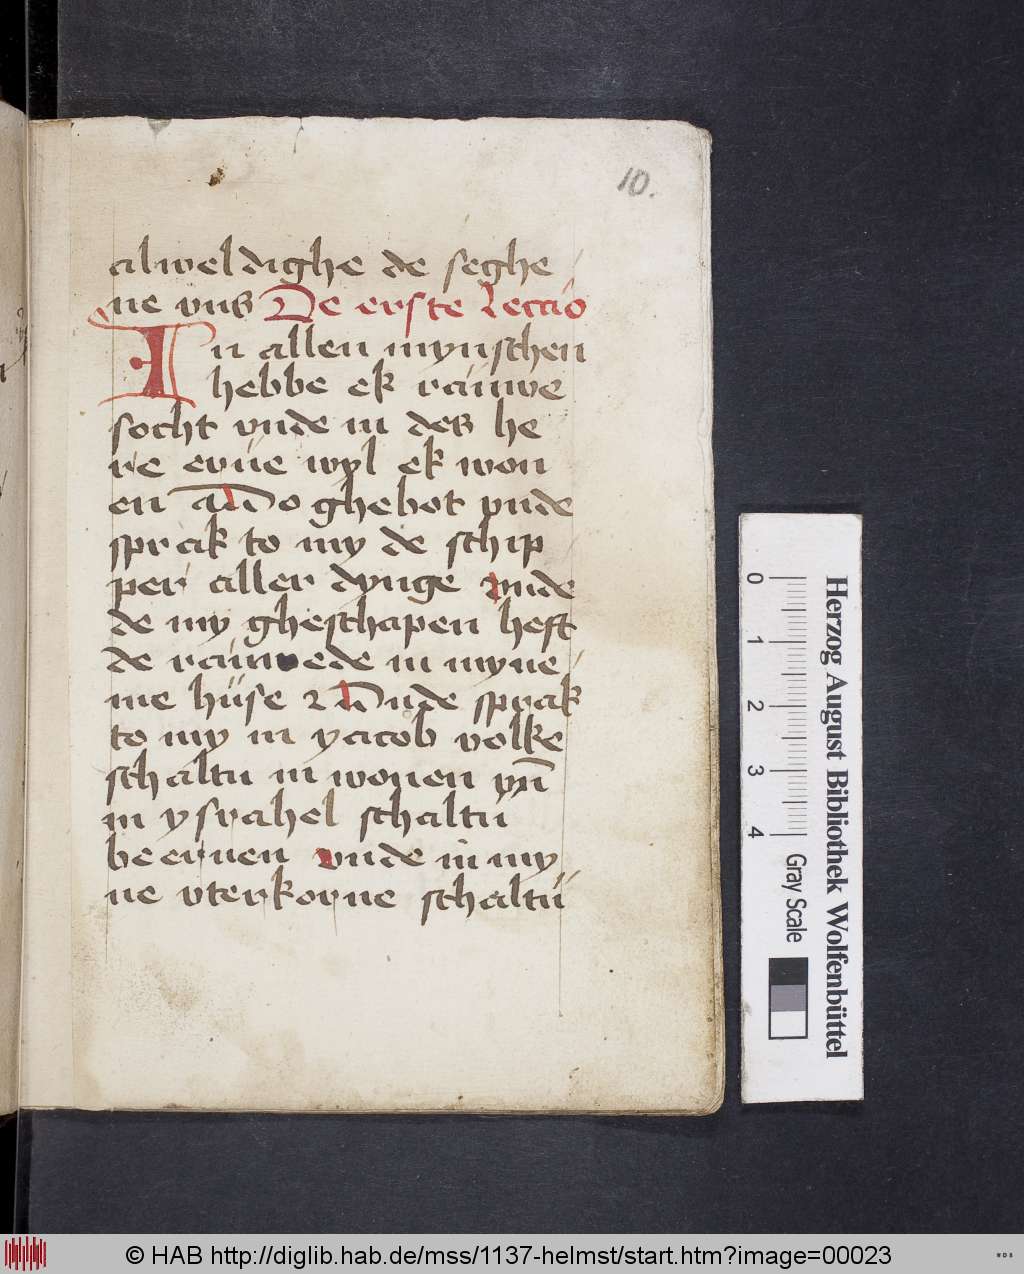 10.
alweldighe de seghe
ne vns De erste Leccio
In allen mynschen
hebbe ek rauwe
socht vnde in des he
re erue wyl ek won
en also ghebot vnde
sprak to my de schip
per aller dynge vnde
de my gheschapen heft
de rauwede in myne
me huse vnde sprak
to my in yacob volke
schaltu in wonen vn̄
in ysrahel schaltu
beeruen vnde in my
ne vterkorne schaltu
0 1 2 3 4
Gray Scale
Herzog August Bibliothek Wolfenbüttel
© HAB http://diglib.hab.de/mss/1137-helmst/start.htm?image=00023